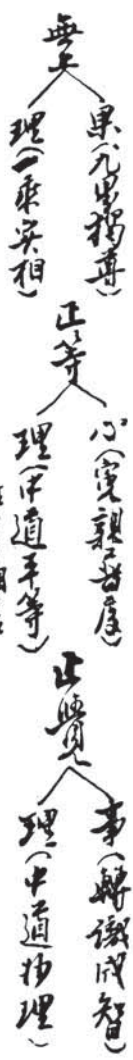 無上
果(九界獨尊)
理(一乘実相)
正等
心(寃親普度)
理(中道平等)
正覺
事(轉識成智)
理(中道物理)